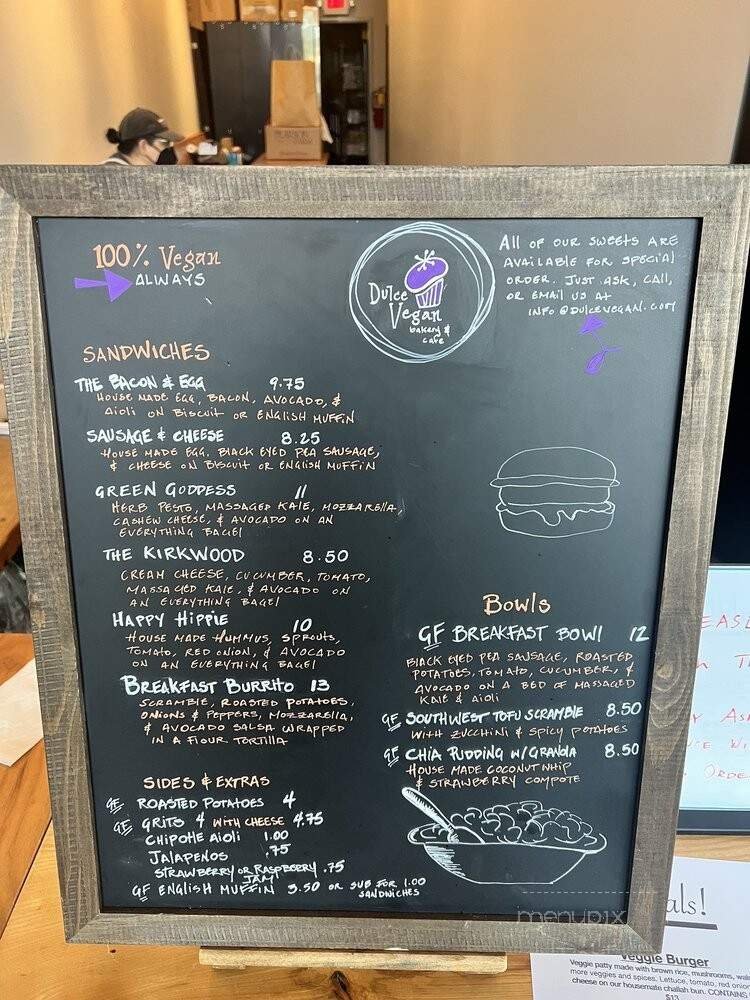 100% Vegan
ALWAYS
Dulce
Vegan
bakery &
cafe
ALL OF OUR SWEETS ARE
AVAILABLE FOR SPECIAL
ORDER. JUST ASK, CALL,
OR EMAIL US AT
INFO@DULCEVEGAN.COM
SANDWICHES
THE BACON & EGG 9.75
HOUSE MADE EGG, BACON, AVOCADO, &
AIOLI ON BISCUIT OR ENGLISH MUFFIN
SAUSAGE & CHEESE 8.25
HOUSE MADE EGG, BLACK EYED PEA SAUSAGE,
& CHEESE ON BISCUIT OR ENGLISH MUFFIN
GREEN GODDESS 11
HERB PESTO, MASSAGED KALE, MOZZARELLA,
CASHEW CHEESE, & AVOCADO ON AN
EVERYTHING BAGEL
THE KIRKWOOD 8.50
CREAM CHEESE, CUCUMBER, TOMATO,
MASSAGED KALE, & AVOCADO ON
AN EVERYTHING BAGEL
HAPPY HIPPIE 10
HOUSE MADE HUMMUS, SPROUTS,
TOMATO, RED ONION, & AVOCADO
ON AN EVERYTHING BAGEL
BREAKFAST BURRITO 13
SCRAMBLE, ROASTED POTATOES,
ONIONS & PEPPERS, MOZZARELLA,
& AVOCADO SALSA WRAPPED
IN A FLOUR TORTILLA
SIDES & EXTRAS
GF ROASTED POTATOES 4
GF GRITS 4 WITH CHEESE 4.75
CHIPOTLE AIOLI 1.00
JALAPENOS .75
STRAWBERRY OR RASPBERRY JAM .75
GF ENGLISH MUFFIN 3.50 OR SUB FOR 1.00
SANDWICHES
Bowls
GF BREAKFAST BOWL 12
BLACK EYED PEA SAUSAGE, ROASTED
POTATOES, TOMATO, CUCUMBER, &
AVOCADO ON A BED OF MASSAGED
KALE & AIOLI
GF SOUTHWEST TOFU SCRAMBLE 8.50
WITH ZUCCHINI & SPICY POTATOES
GF CHIA PUDDING W/GRANOLA 8.50
HOUSE MADE COCONUT WHIP
& STRAWBERRY COMPOTE
menupix
als!
Veggie Burger
Veggie patty made with brown rice, mushrooms, wal
more veggies and spices. Lettuce, tomato, red onio
cheese on our housemate challah bun. CONTAINS